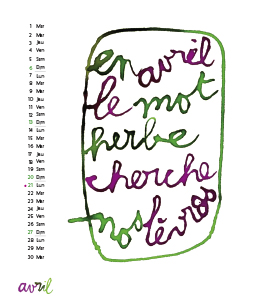 1 Mar
2 Mer
3 Jeu
4 Ven
5 Sam
6 Dim
7 Lun
8 Mar
9 Mer
10 Jeu
11 Ven
12 Sam
13 Dim
14 Lun
15 Mar
16 Mer
17 Jeu
18 Ven
19 Sam
20 Dim
21 Lun
22 Mar
23 Mer
24 Jeu
25 Ven
26 Sam
27 Dim
28 Lun
29 Mar
30 Mer
en avril
le mot
herbe
cherche
nos lèvres
avril